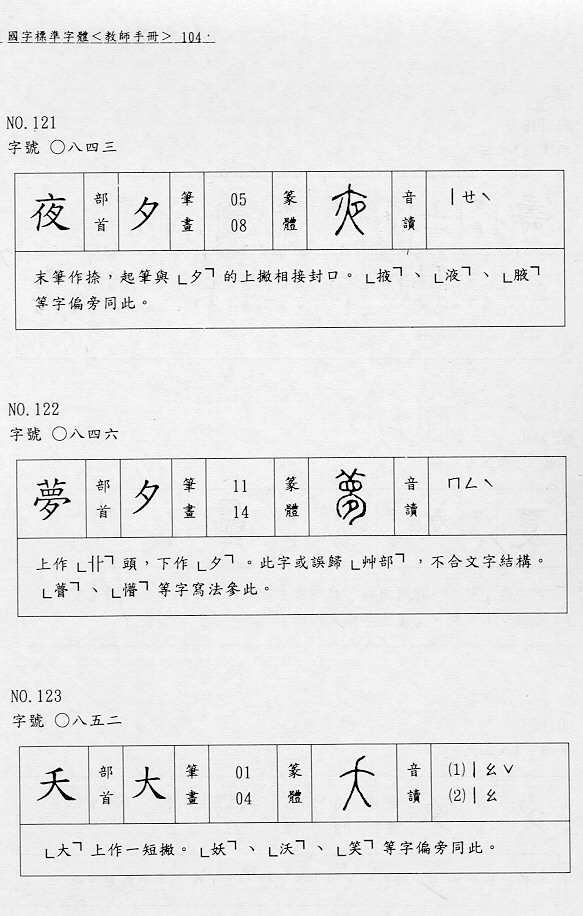 國字標準字體＜教師手冊＞ 104．
NO.121
字號 ○八四三
夜 部首 夕 筆畫 05 08 篆體 音讀 ㄧㄝˋ
末筆作捺，起筆與「夕」的上撇相接封口。「掖」、「液」、「腋」
等字偏旁同此。
NO.122
字號 ○八四六
夢 部首 夕 筆畫 11 14 篆體 音讀 ㄇㄥˋ
上作「卝」頭，下作「夕」。此字或誤歸「艸部」，不合文字結構。
「薹」、「懵」等字寫法參此。
NO.123
字號 ○八五二
夭 部首 大 筆畫 01 04 篆體 音讀 ⑴ㄧㄠˇ ⑵ㄧㄠ
「大」上作一短撇。「妖」、「沃」、「笑」等字偏旁同此。